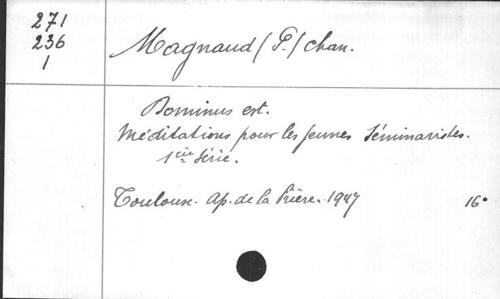 271
236
1
Magnaud (P.) chan.
Dominus est.
Méditations pour les jeunes séminaristes.
1ère série.
Toulouse. Ap. de la Prière. 1947
16°